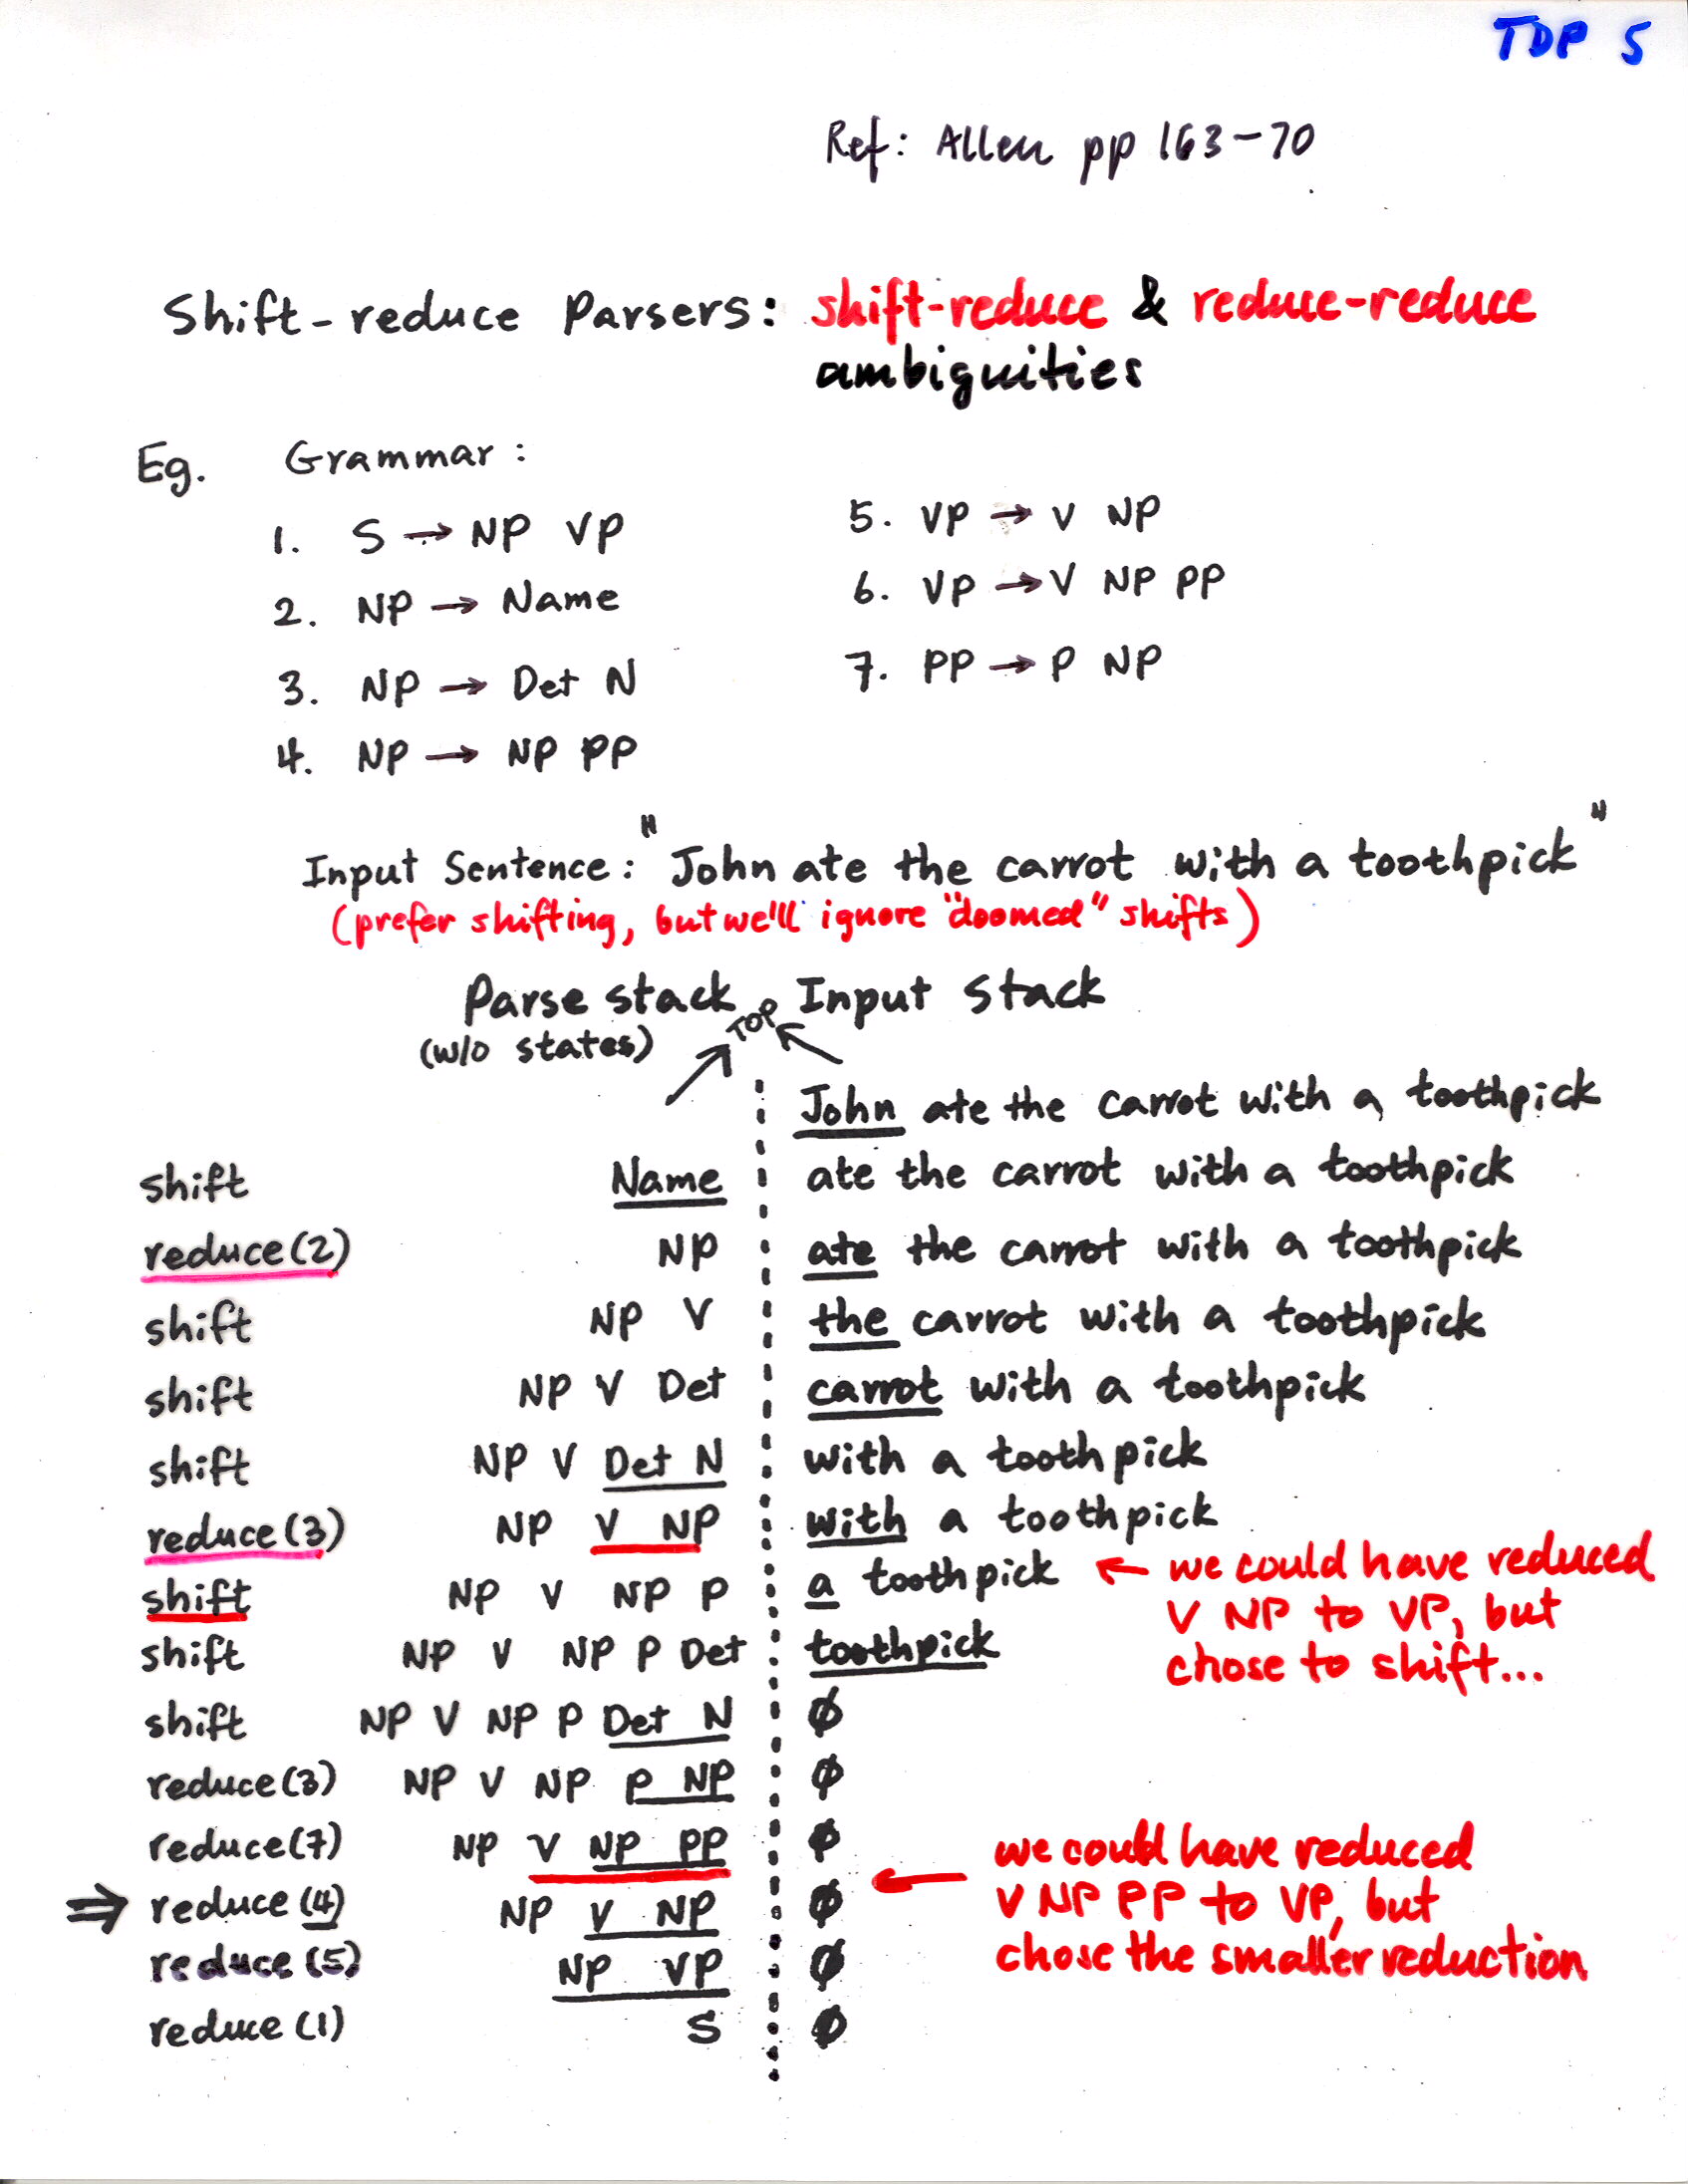 TDP 5
Ref: Allen pp 163-70
Shift-reduce Parsers: shift-reduce & reduce-reduce
ambiguities
Eg. Grammar:
1. S → NP VP
2. NP → Name
3. NP → Det N
4. NP → NP PP
5. VP → V NP
6. VP → V NP PP
7. PP → P NP
Input Sentence: "John ate the carrot with a toothpick"
(prefer shifting, but we'll ignore "doomed" shifts)
Parse stack TOP Input stack
(w/o states)
John ate the carrot with a toothpick
shift Name ate the carrot with a toothpick
reduce(2) NP ate the carrot with a toothpick
shift NP V the carrot with a toothpick
shift NP V Det carrot with a toothpick
shift NP V Det N with a toothpick
reduce(3) NP V NP with a toothpick
shift NP V NP P a toothpick ← we could have reduced
V NP to VP, but
shift NP V NP P Det toothpick chose to shift...
shift NP V NP P Det N ∅
reduce(3) NP V NP P NP ∅
reduce(7) NP V NP PP ∅ ← we could have reduced
⇒ reduce(4) NP V NP ∅ V NP PP to VP, but
reduce(5) NP VP ∅ chose the smaller reduction
reduce(1) S ∅